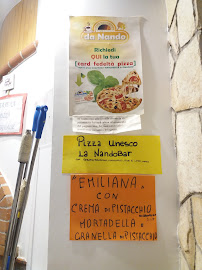 da Nando
Richiedi
QUI la tua
[card fedeltà pizza]
Pizza Unesco
La NandoBar
"EMILIANA"
CON
CREMA DI PISTACCHIO
MORTADELLA
GRANELLA DI PISTACCHIO